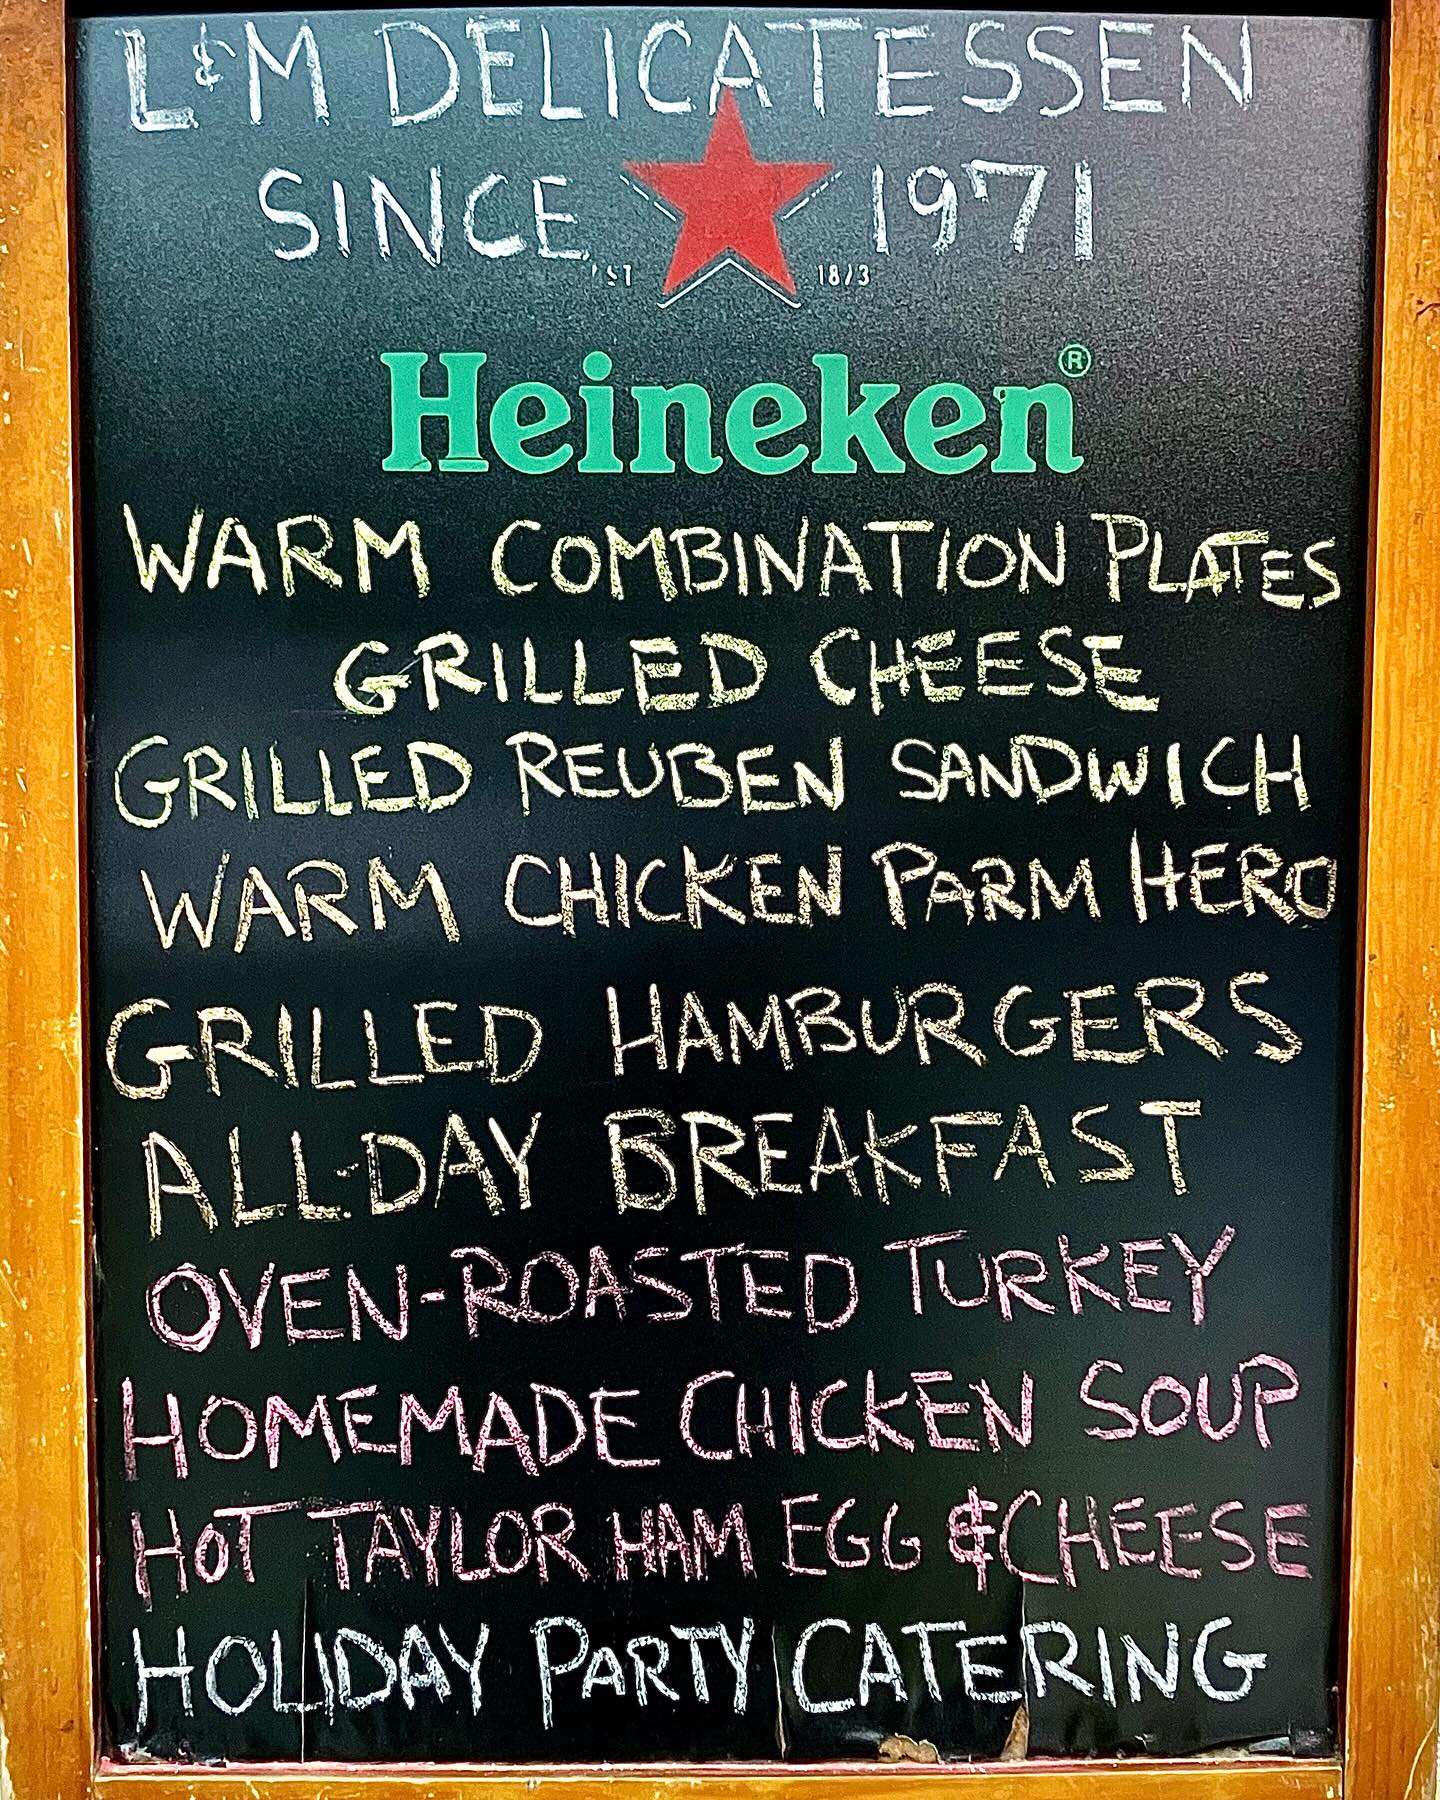 L&M DELICATESSEN
SINCE 1971
EST 1873
Heineken®
WARM COMBINATION PLATES
GRILLED CHEESE
GRILLED REUBEN SANDWICH
WARM CHICKEN PARM HERO
GRILLED HAMBURGERS
ALL-DAY BREAKFAST
OVEN-ROASTED TURKEY
HOMEMADE CHICKEN SOUP
HOT TAYLOR HAM EGG & CHEESE
HOLIDAY PARTY CATERING